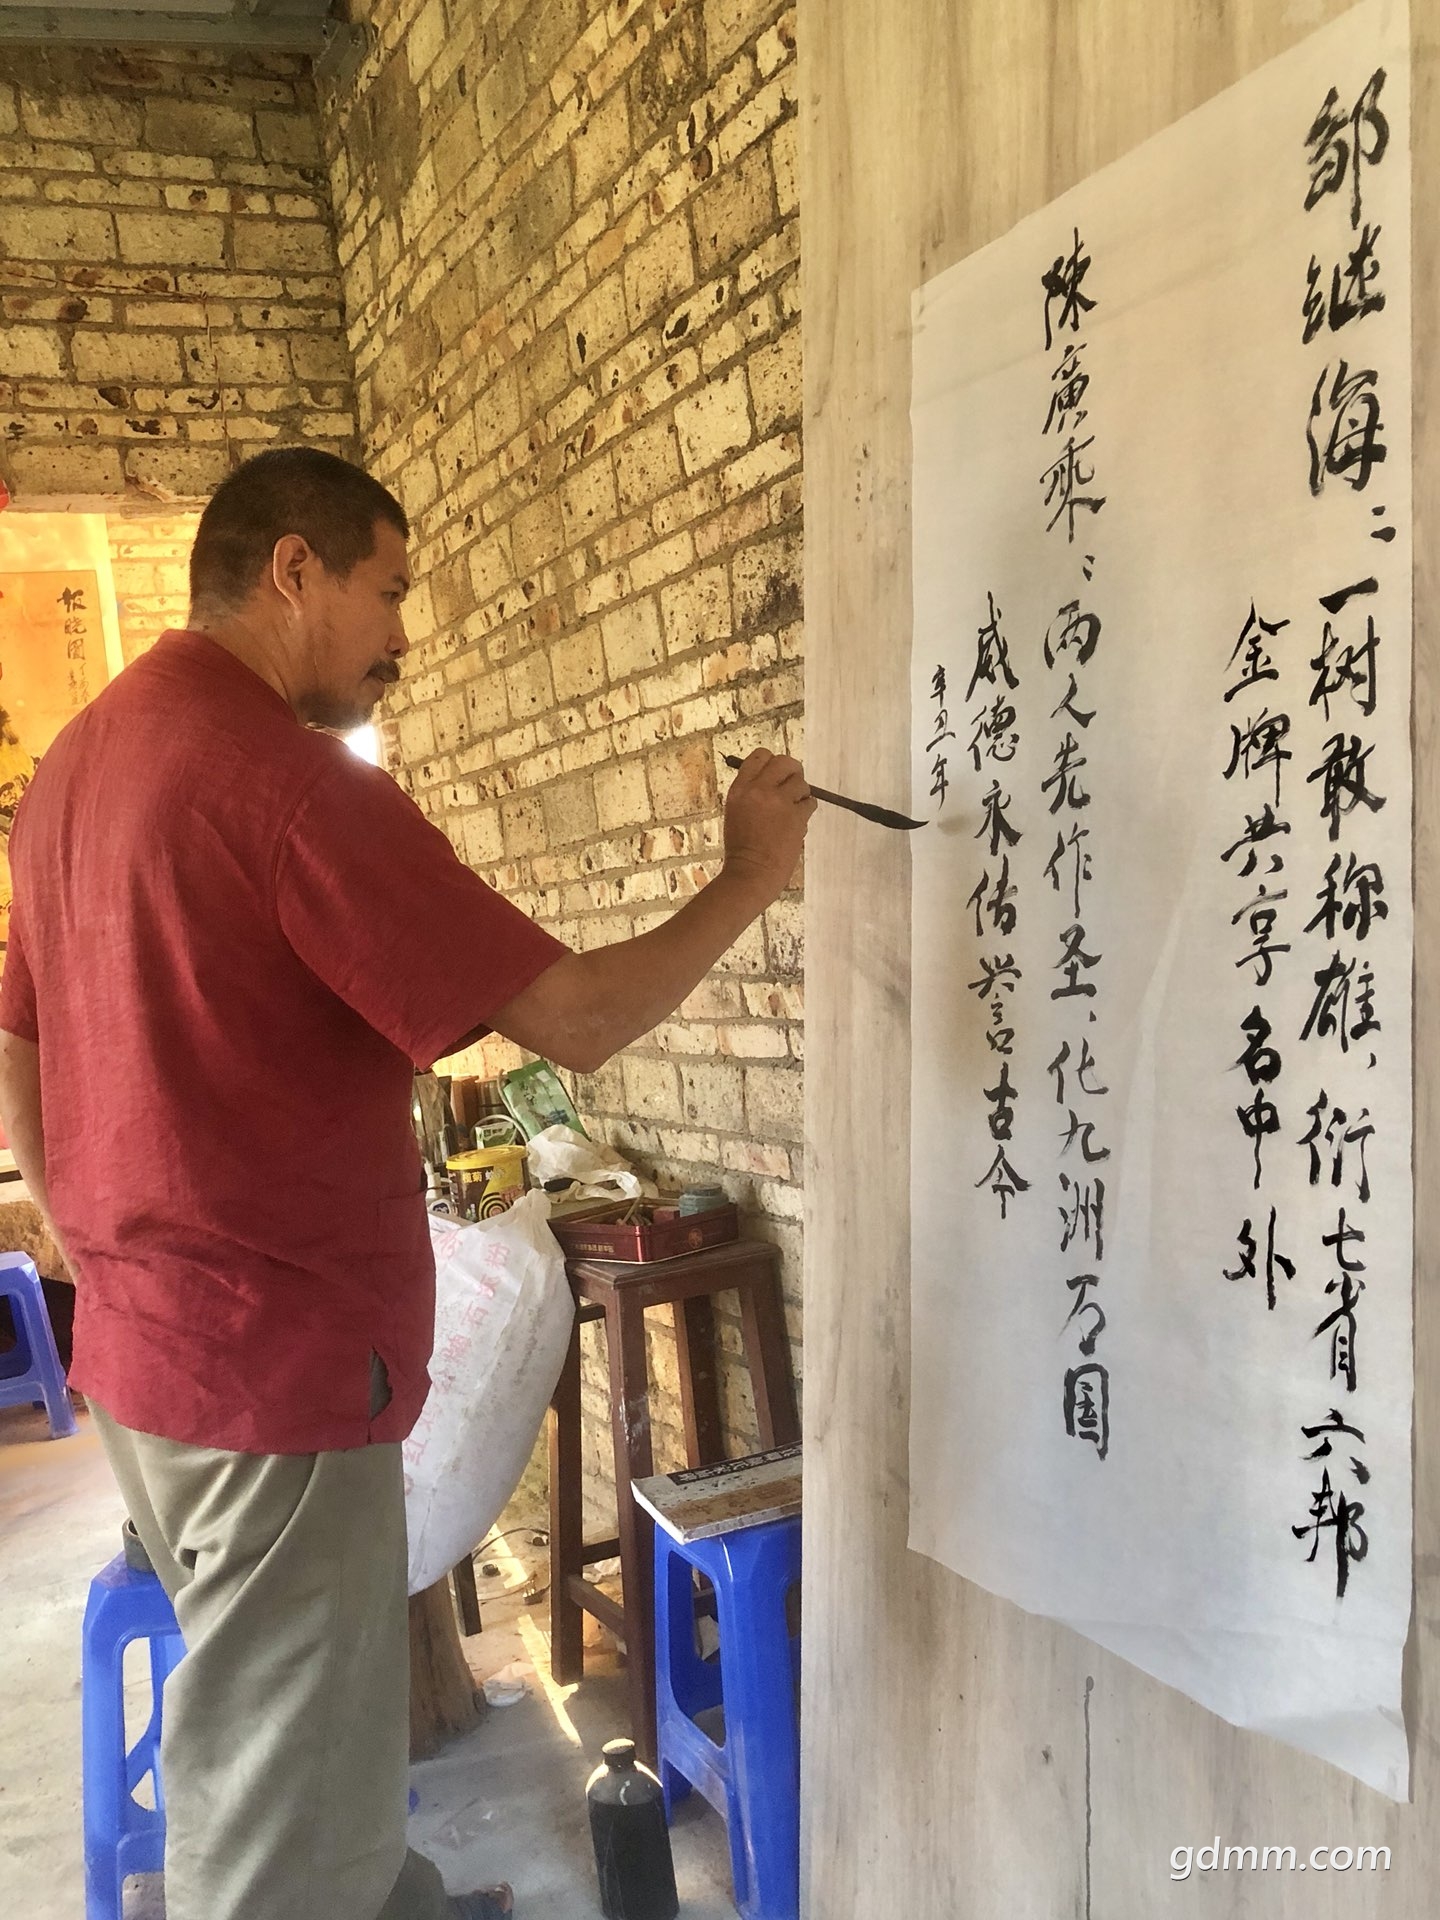 邹继海：一树敢称雄、衍七省六邦
金牌共享名中外
陳廣乘：两人先作圣、化九洲万国
威德永传誉古今
辛丑年
报晓图
gdmm.com